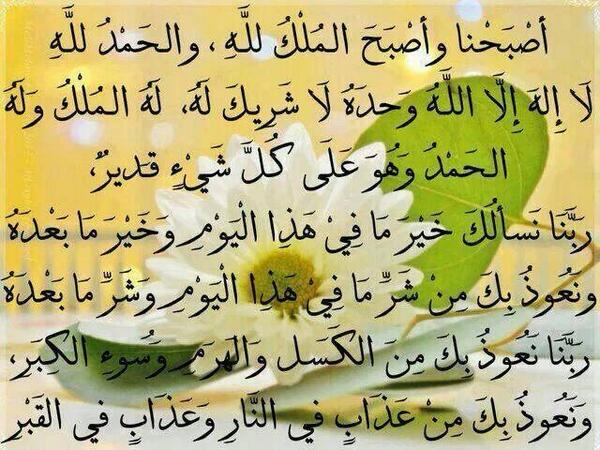 أصْبَحْنا وأصْبَحَ المُلْكُ للَّهِ، والحَمْدُ للَّهِ
لَا إِلهَ إِلَّا اللَّهُ وَحدَهُ لَا شَرِيكَ لَهُ، لَهُ المُلْكُ وَلَهُ
الحَمْدُ وَهُوَ عَلَى كُلِّ شَيْءٍ قَديرٌ،
رَبَّنَا نَسألُكَ خَيْرَ مَا فِيْ هَذِا الْيَوْمِ وَخَيْرَ مَا بَعْدَهُ
ونَعُوذُ بِكَ مِنْ شَرِّ مَا فِيْ هَذِا الْيَوْمِ وَشَرِّ مَا بَعْدَهُ
رَبَّنَا نَعُوذُ بِكَ مِنَ الكَسَلِ وَالهَرَمِ وَسُوءِ الكِبَرِ،
وَنَعُوذُ بِكَ مِنْ عَذَابٍ في النَّارِ وَعَذَابٍ في القَبْرِ